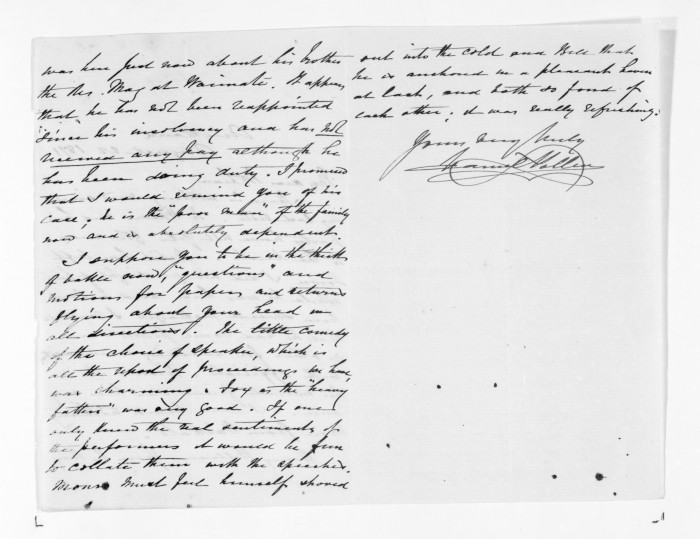 was here just now about his brother
the Res. Mag at Waimate. It happens
that he has not been reappointed
since his insolvency and has not
received any pay although he
has been doing duty. I promised
that I would remind you of his
case, he is the "poor man" of the family
now and is absolutely dependent.
I suppose you to be in the thick
of battle now, "questions" and
motions for papers and returns
flying about your head in
all directions. The little comedy
of the choice of Speaker, which is
all the report of proceedings we have,
was charming. Fox as the "heavy
father" was very good. If one
only knew the real sentiments of
the performers it would be fun
to collate them with the speeches.
Monro must feel himself shoved
out into the cold and Bell that
he is anchored in a pleasant haven
at last, and both so fond of
each other; it was really refreshing.
Yours very truly